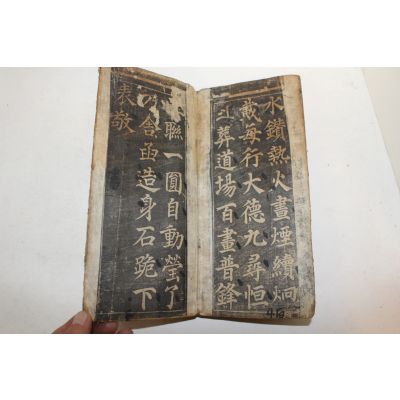 水鑽熱火畫煙續炯
載每行大德九尋恒
葬道場百畫普鋒
聯一圓自動瑩了
舍函造身石跪下
表敬